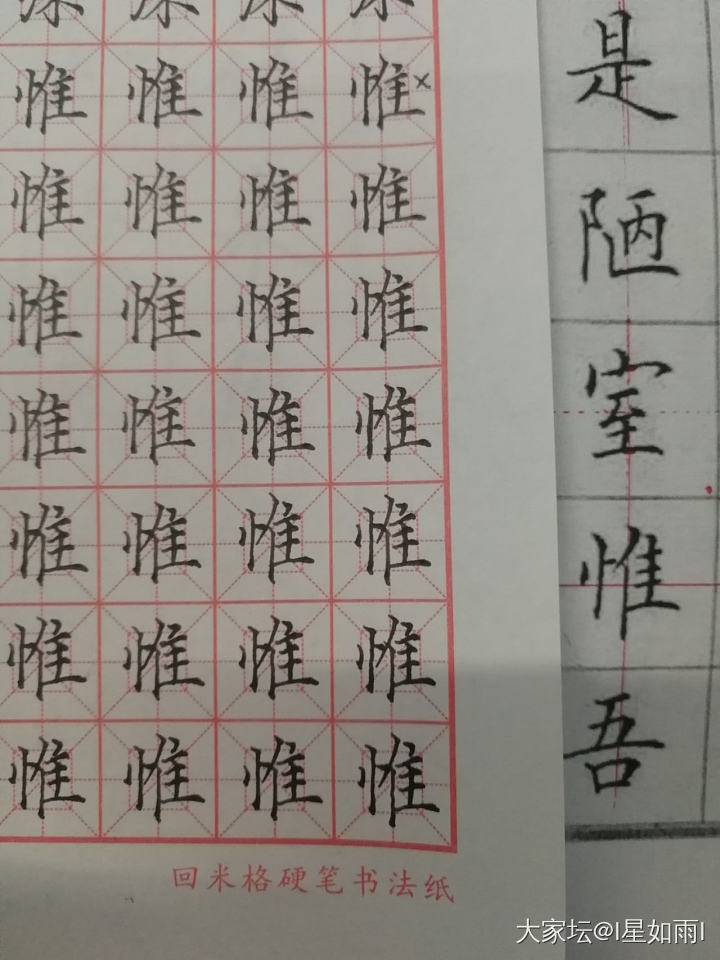 惟 惟 惟 惟
惟 惟 惟 惟
惟 惟 惟 惟
惟 惟 惟 惟
惟 惟 惟 惟
惟 惟 惟 惟
惟 惟 惟 惟
回米格硬笔书法纸
是
陋
室
惟
吾
大家坛@l星如雨l